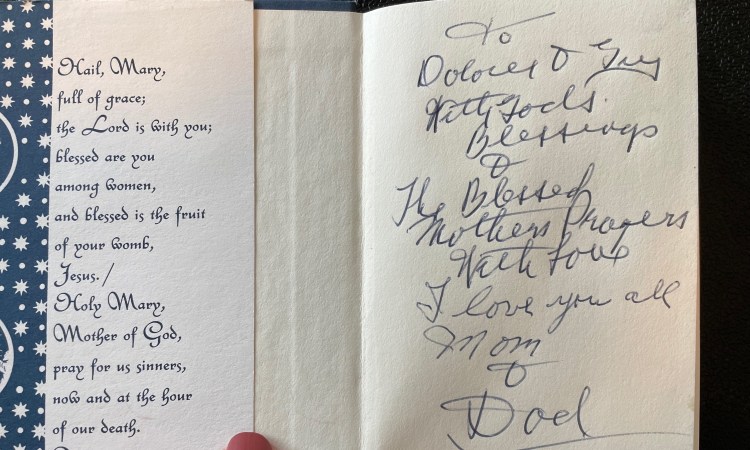 Hail, Mary,
full of grace;
the Lord is with you;
blessed are you
among women,
and blessed is the fruit
of your womb,
Jesus./
Holy Mary,
Mother of God,
pray for us sinners,
now and at the hour
of our death.
To
Dolores & Guy
With Gods
Blessings
&
The Blessed
Mothers Prayers
With Love
I love you all
Mom
&
Dad